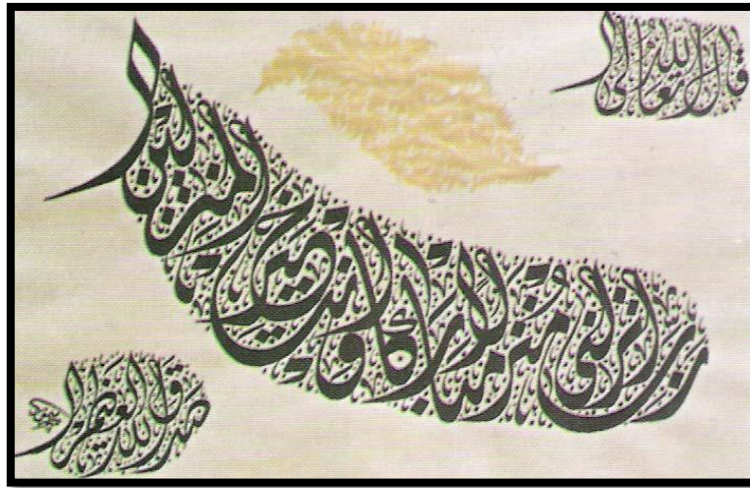 قال الله تعالى
رب أنزلني منزلا مباركا وأنت خير المنزلين
صدق الله العظيم